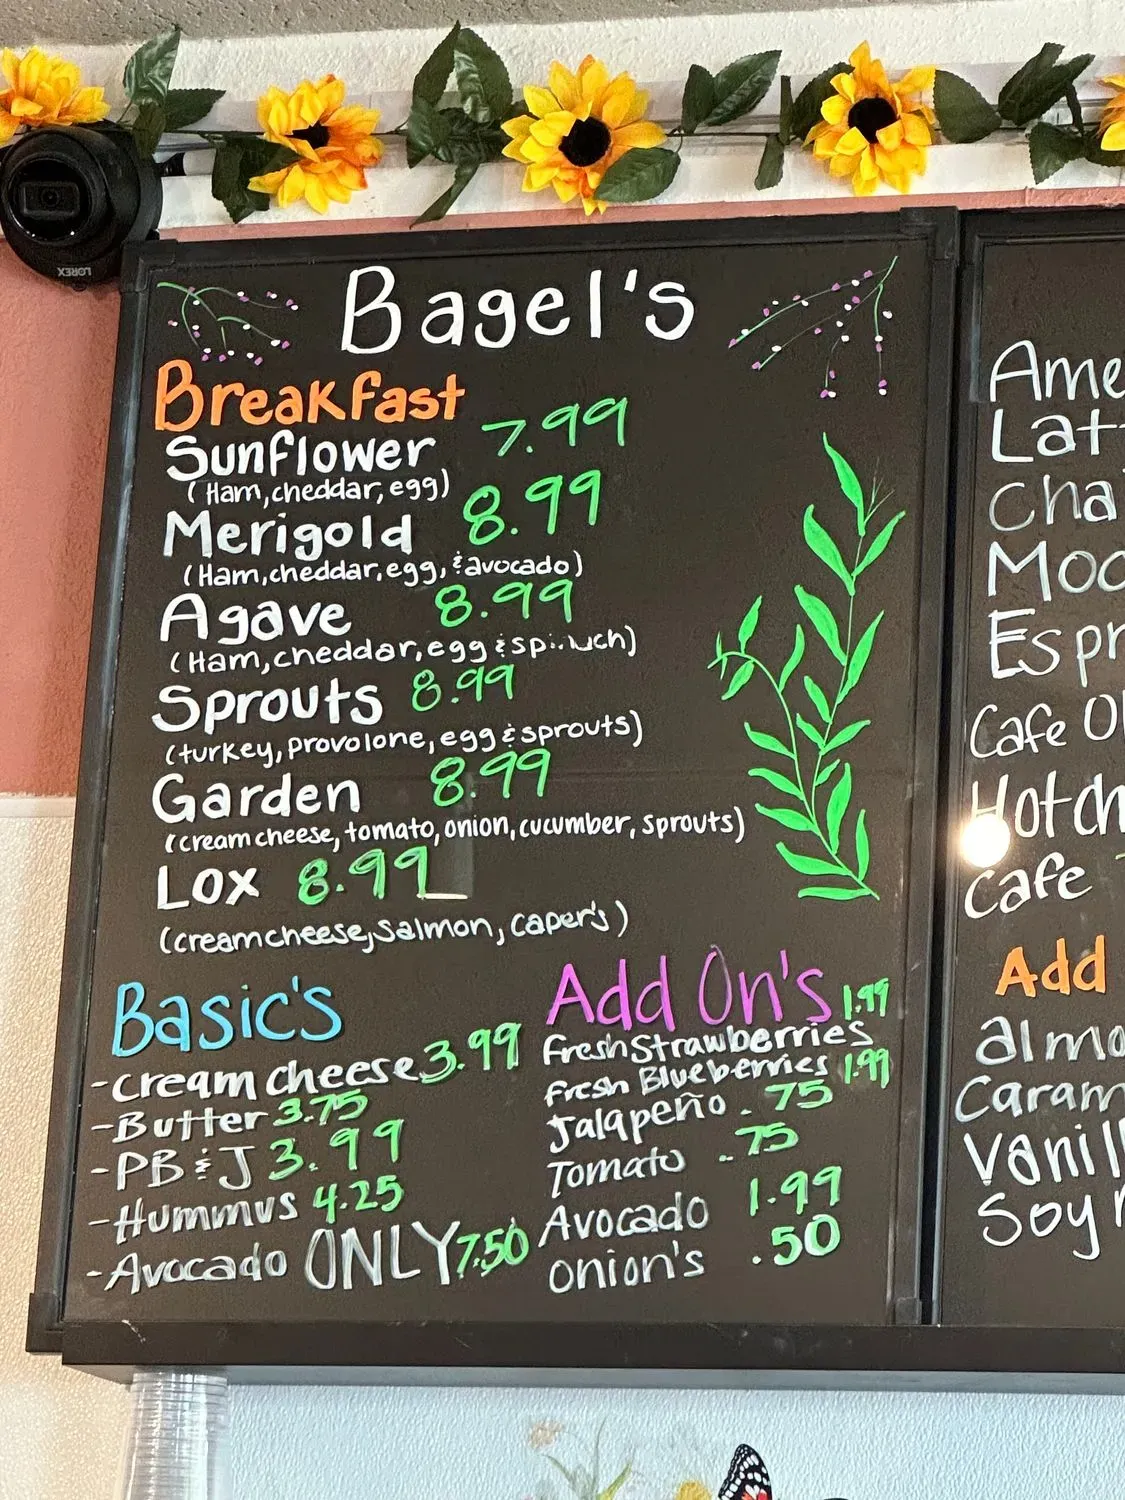 LOREX
Bagel's
Breakfast
Sunflower 7.99
(Ham, cheddar, egg)
Merigold 8.99
(Ham, cheddar, egg, & avocado)
Agave 8.99
(Ham, cheddar, egg &
Sprouts 8.99
(turkey, provolone, egg & sprouts)
Garden 8.99
(cream cheese, tomato, onion, cucumber, sprouts)
Lox 8.99
(cream cheese, Salmon, caper's)
Basic's
-cream cheese 3.99
-Butter 3.75
-PB & J 3.99
-Hummus 4.25
-Avocado ONLY 7.50
Add On's
Fresh Strawberries 1.99
Fresh Blueberries 1.99
Jalapeño .75
Tomato .75
Avocado 1.99
onion's .50
Ame
Latt
Cha
Moc
Espr
Cafe Ol
Hot ch
Cafe
Add
almo
Caram
Vanill
Soy